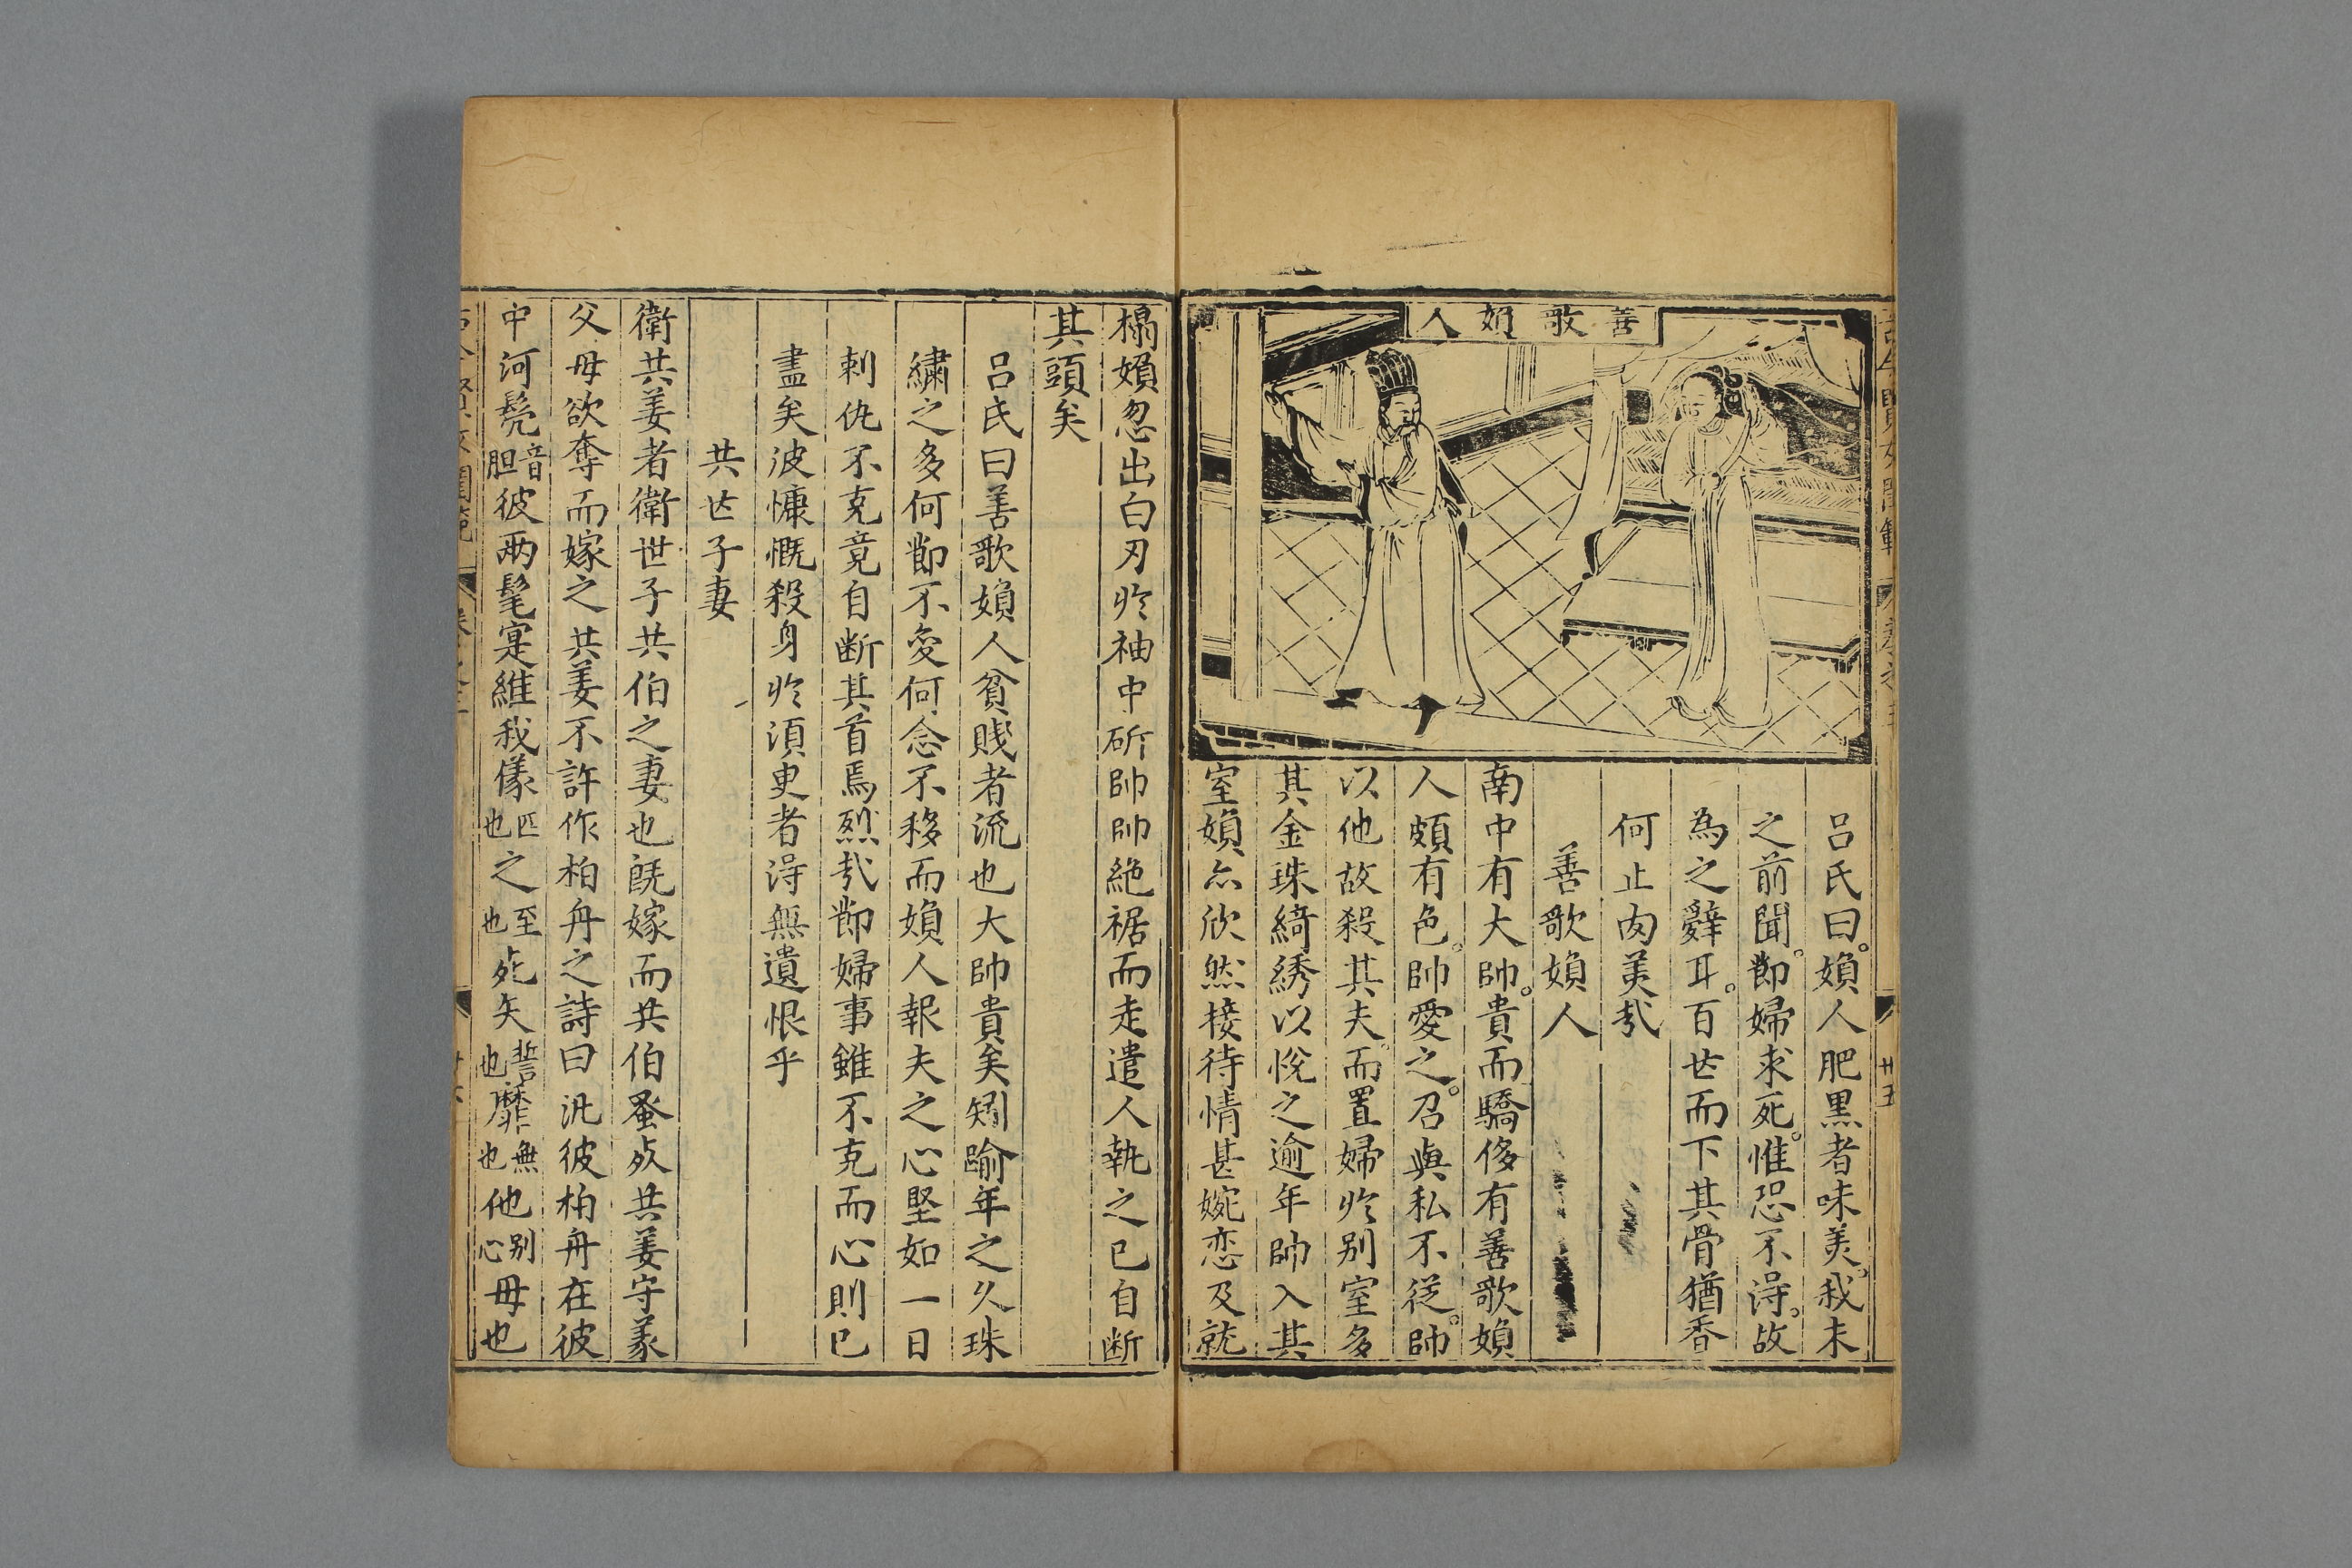 善歌媍人
呂氏曰媍人肥黒者味美我未
之前聞節婦求死惟恐不得故
為之辤耳百世而下其骨猶香
何止肉美㢤
善歌媍人
南中有大帥貴而驕侈有善歌媍
人頗有色帥愛之召與私不從帥
以他故殺其夫而置婦扵别室多
其金珠綺綉以悅之逾年帥入其
室媍亦欣然接待情甚婉恋及就
榻媍忽出白刃扵袖中斫帥帥絶裾而走遣人執之已自断
其頭矣
呂氏曰善歌媍人貧賎者流也大帥貴矣矧踰年之久珠
繡之多何節不變何念不移而媍人報夫之心堅如一日
刺仇不克竟自断其首焉烈㢤節婦事雖不克而心則已
盡矣彼慷慨殺身扵湏臾者淂無遺恨乎
共世子妻
衛共姜者衛世子共伯之妻也旣嫁而共伯蚤死共姜守義
父母欲奪而嫁之共姜不許作柏舟之詩曰汎彼柏舟在彼
中河髧音胆彼两髦寔維我儀匹也之至也死矢誓也靡無也他别心母也